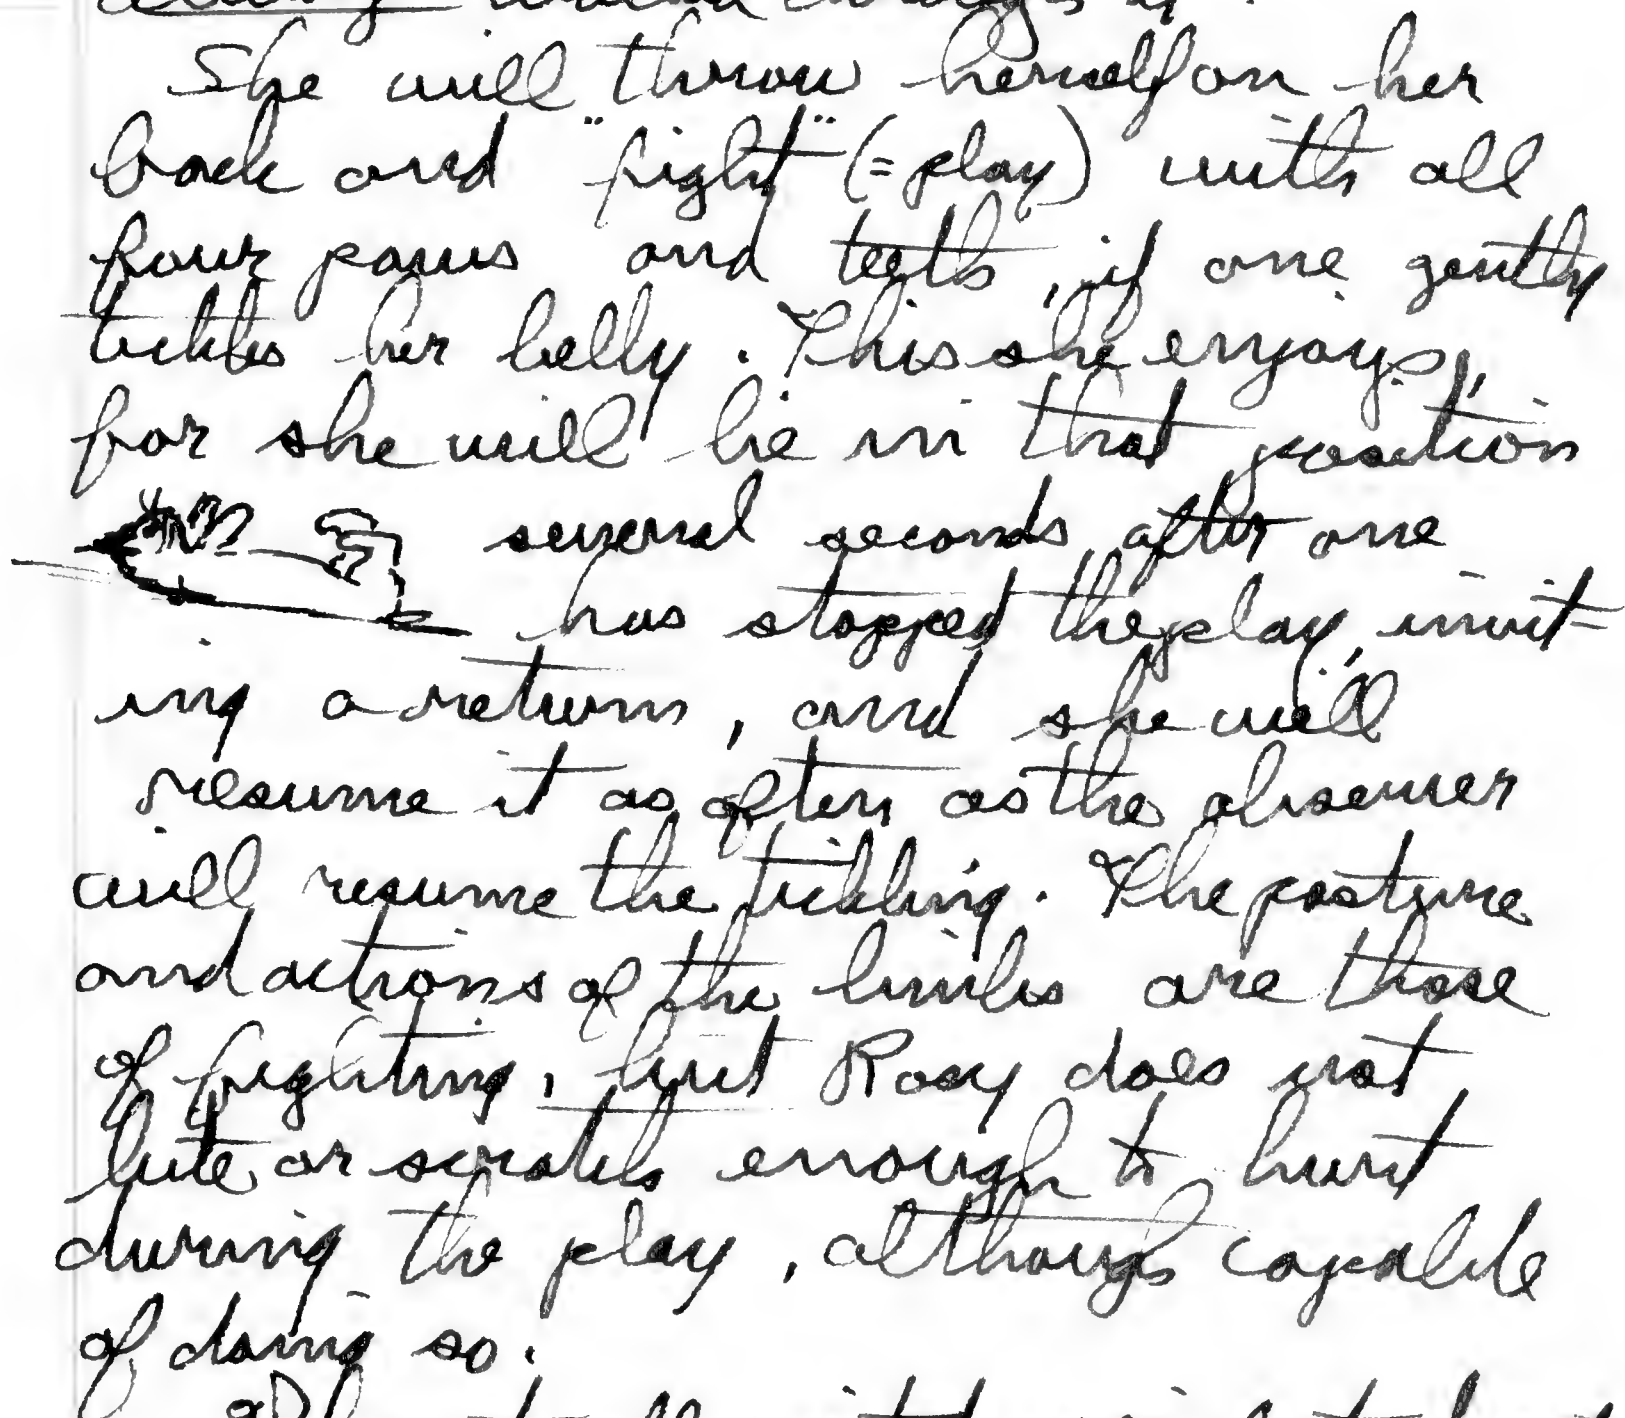 She will throw herself on her
back and "fight" (= play) with all
four paws and teeth, if one gently
tickles her belly. This she enjoys,
for she will lie in that position
several seconds after one
has stopped the play, invit-
ing a return, and she will
resume it as often as the observer
will resume the tickling. The posture
and actions of the limbs are those
of fighting, but Roxy does not
bite or scratch enough to hurt
during the play, although capable
of doing so.